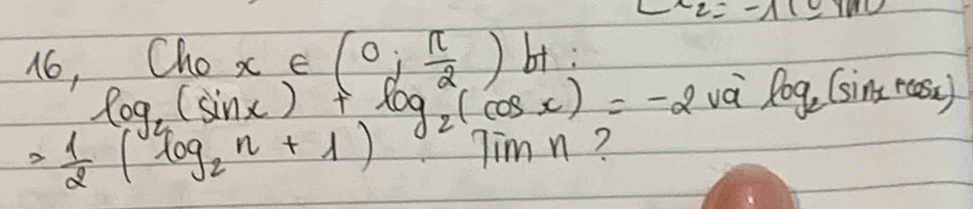 x₂ = -1 (
16, Cho x ∈ (0; π/2) bt:
log₂(sinx) + log₂(cos x) = -2 và log₂(sinx+cosx)
= 1/2 (log₂ n + 1). Tìm n?